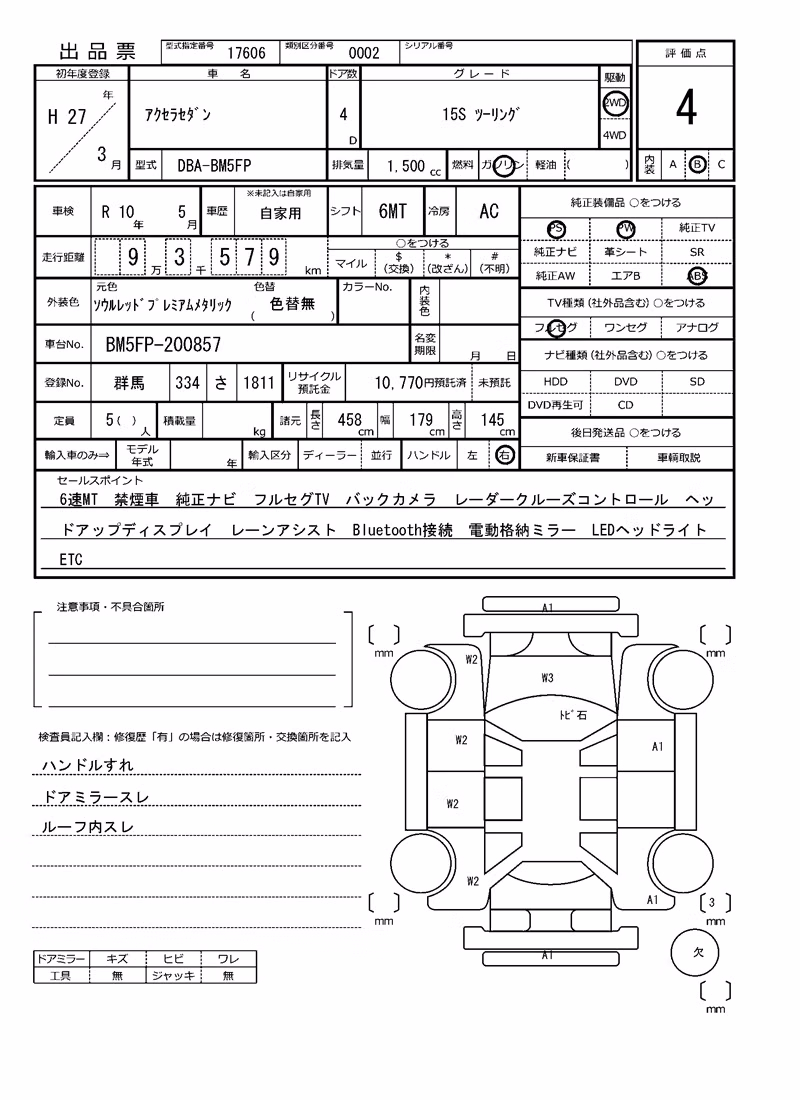 出品票 型式指定番号 17606 類別区分番号 0002 シリアル番号
評価点
4
内装 A B C
初年度登録 車名 ドア数 グレード 駆動
H 27 年 3 月 アクセラセダン 4 D 15S ツーリング 2WD 4WD
型式 DBA-BM5FP 排気量 1,500 cc 燃料 ガソリン 軽油 ( )
車検 R 10 年 5 月 車歴 ※未記入は自家用 自家用 シフト 6MT 冷房 AC
走行距離 9 万 3 千 5 7 9 km ○をつける
マイル $ (交換) * (改ざん) # (不明)
外装色 元色 ソウルレッドプレミアムメタリック 色替 ( 色替無 ) カラーNo. 内装色
車台No. BM5FP-200857 名変期限 月 日
登録No. 群馬 334 さ 1811 リサイクル預託金 10,770円預託済 未預託
定員 5( ) 人 積載量 kg 諸元 長さ 458 cm 幅 179 cm 高さ 145 cm
輸入車のみ⇒ モデル年式 年 輸入区分 ディーラー 並行 ハンドル 左 右
純正装備品 ○をつける
PS PW 純正TV
純正ナビ 革シート SR
純正AW エアB ABS
TV種類(社外品含む)○をつける
フルセグ ワンセグ アナログ
ナビ種類(社外品含む)○をつける
HDD DVD SD
DVD再生可 CD
後日発送品 ○をつける
新車保証書 車輌取説
セールスポイント
6速MT 禁煙車 純正ナビ フルセグTV バックカメラ レーダークルーズコントロール ヘッ
ドアップディスプレイ レーンアシスト Bluetooth接続 電動格納ミラー LEDヘッドライト
ETC
注意事項・不具合箇所
検査員記入欄：修復歴「有」の場合は修復箇所・交換箇所を記入
ハンドルすれ
ドアミラースレ
ルーフ内スレ
ドアミラー キズ ヒビ ワレ
工具 無 ジャッキ 無
A1
mm mm
W2
W3
トビ石
W2 A1
W2
W2
A1
3
mm mm
A1
欠
mm